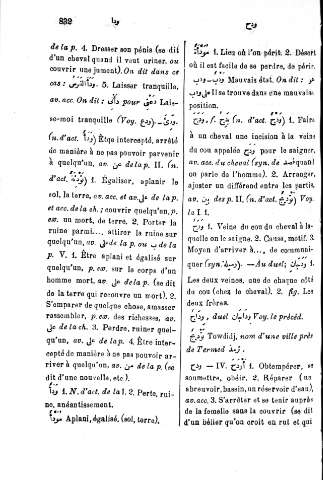 832
ودأ
ودج
de la p. 4. Dresser son pénis (se dit
d'un cheval quand il veut uriner, ou
couvrir une jument). On dit dans ce
cas: 5. Laisser tranquille,
av. acc. On dit: دعني pour Lais-
se-moi tranquille (ودع). —
(n. d'act. ودأ) Être intercepté, arrêté
de manière à ne pas pouvoir parvenir
à quelqu'un, av. على de la p. II. (n.
d'act. ) 1. Égaliser, aplanir le
sol, la terre, av. acc. et av. على de la p.
et acc. de la ch.; couvrir quelqu'un, p.
ex. un mort, de terre. 2. Porter la
ruine parmi..., attirer la ruine sur
quelqu'un, av. على de la p. ou ب de la
p. V. 1. Être aplani et égalisé sur
quelqu'un, p. ex. sur le corps d'un
homme mort, av. على de la p. (se dit
de la terre qui recouvre un mort). 2.
S'emparer de quelque chose, amasser
rassembler, p. ex. des richesses, av.
على de la ch. 3. Perdre, ruiner quel-
qu'un, av. على de la p. 4. Être inter-
cepté de manière à ne pas pouvoir ar-
river à quelqu'un, av. عن de la p. (se
dit d'une nouvelle, etc.).
ودأ 1. N. d'act. de la I. 2. Perte, rui-
ne, anéantissement.
Aplani, égalisé, (sol, terre).
1. Lieu où l'on périt. 2. Désert
où il est facile de se perdre, de périr.
Mauvais état. On dit:
Il se trouve dans une mauvaise
position.
ودج f. (n. d'act. ودج) 1. Faire
à un cheval une incision à la veine
du cou appelée ودج pour le saigner,
av. acc. du cheval (syn. de فصد quand
on parle de l'homme). 2. Arranger,
ajuster un différend entre les partis,
av. بين des p. II. (n. d'act. ) Voy.
le I. 1.
ودج 1. Veine du cou du cheval à la-
quelle on le saigne. 2. Cause, motif. 3.
Moyen d'arriver à..., de communi-
quer (syn. وسيلة). —Au duel; ودجان 1.
Les deux veines, une de chaque côté
du cou (chez le cheval). 2. fig. Les
deux frères.
وداج, duel وداجان Voy. le précéd.
Towdidj, nom d'une ville près
de Termed ترمذ.
ودح — IV. أودح 1. Obtempérer, se
soumettre, obéir. 2. Réparer (un
abreuvoir, bassin, un réservoir d'eau),
av. acc. 3. S'arrêter et se tenir auprès
de la femelle sans la couvrir (se dit
d'un bélier qu'on croit en rut et qui